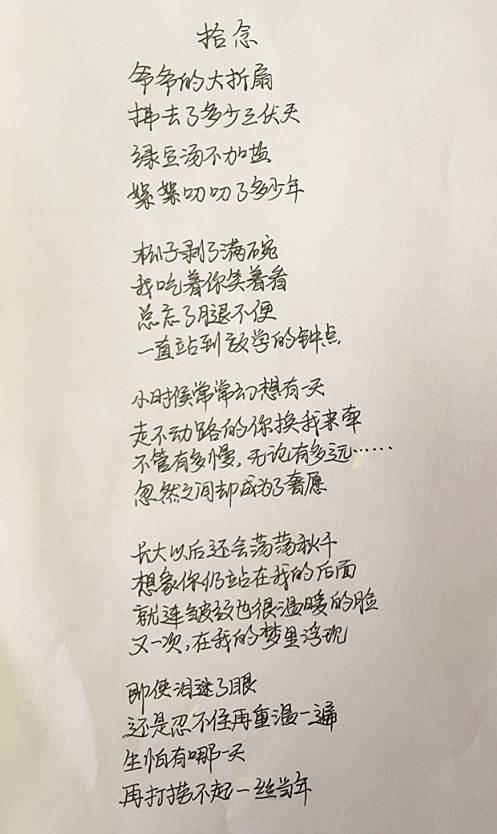 拾念
爷爷的大折扇
拂去了多少三伏天
绿豆汤不加盐
絮絮叨叨了多少年
松子剥了满碗
我吃着你笑着看
总忘了腿不便
一直站到放学的钟点
小时候常常幻想有一天
走不动路的你换我来牵
不管有多慢,无论有多远……
忽然之间却成为了奢愿
长大以后还会荡荡秋千
想象你仍站在我的后面
就连皱纹也很温暖的脸
又一次,在我的梦里浮现
即使泪迷了眼
还是忍不住再重温一遍
生怕有哪一天
再打捞不起一丝当年